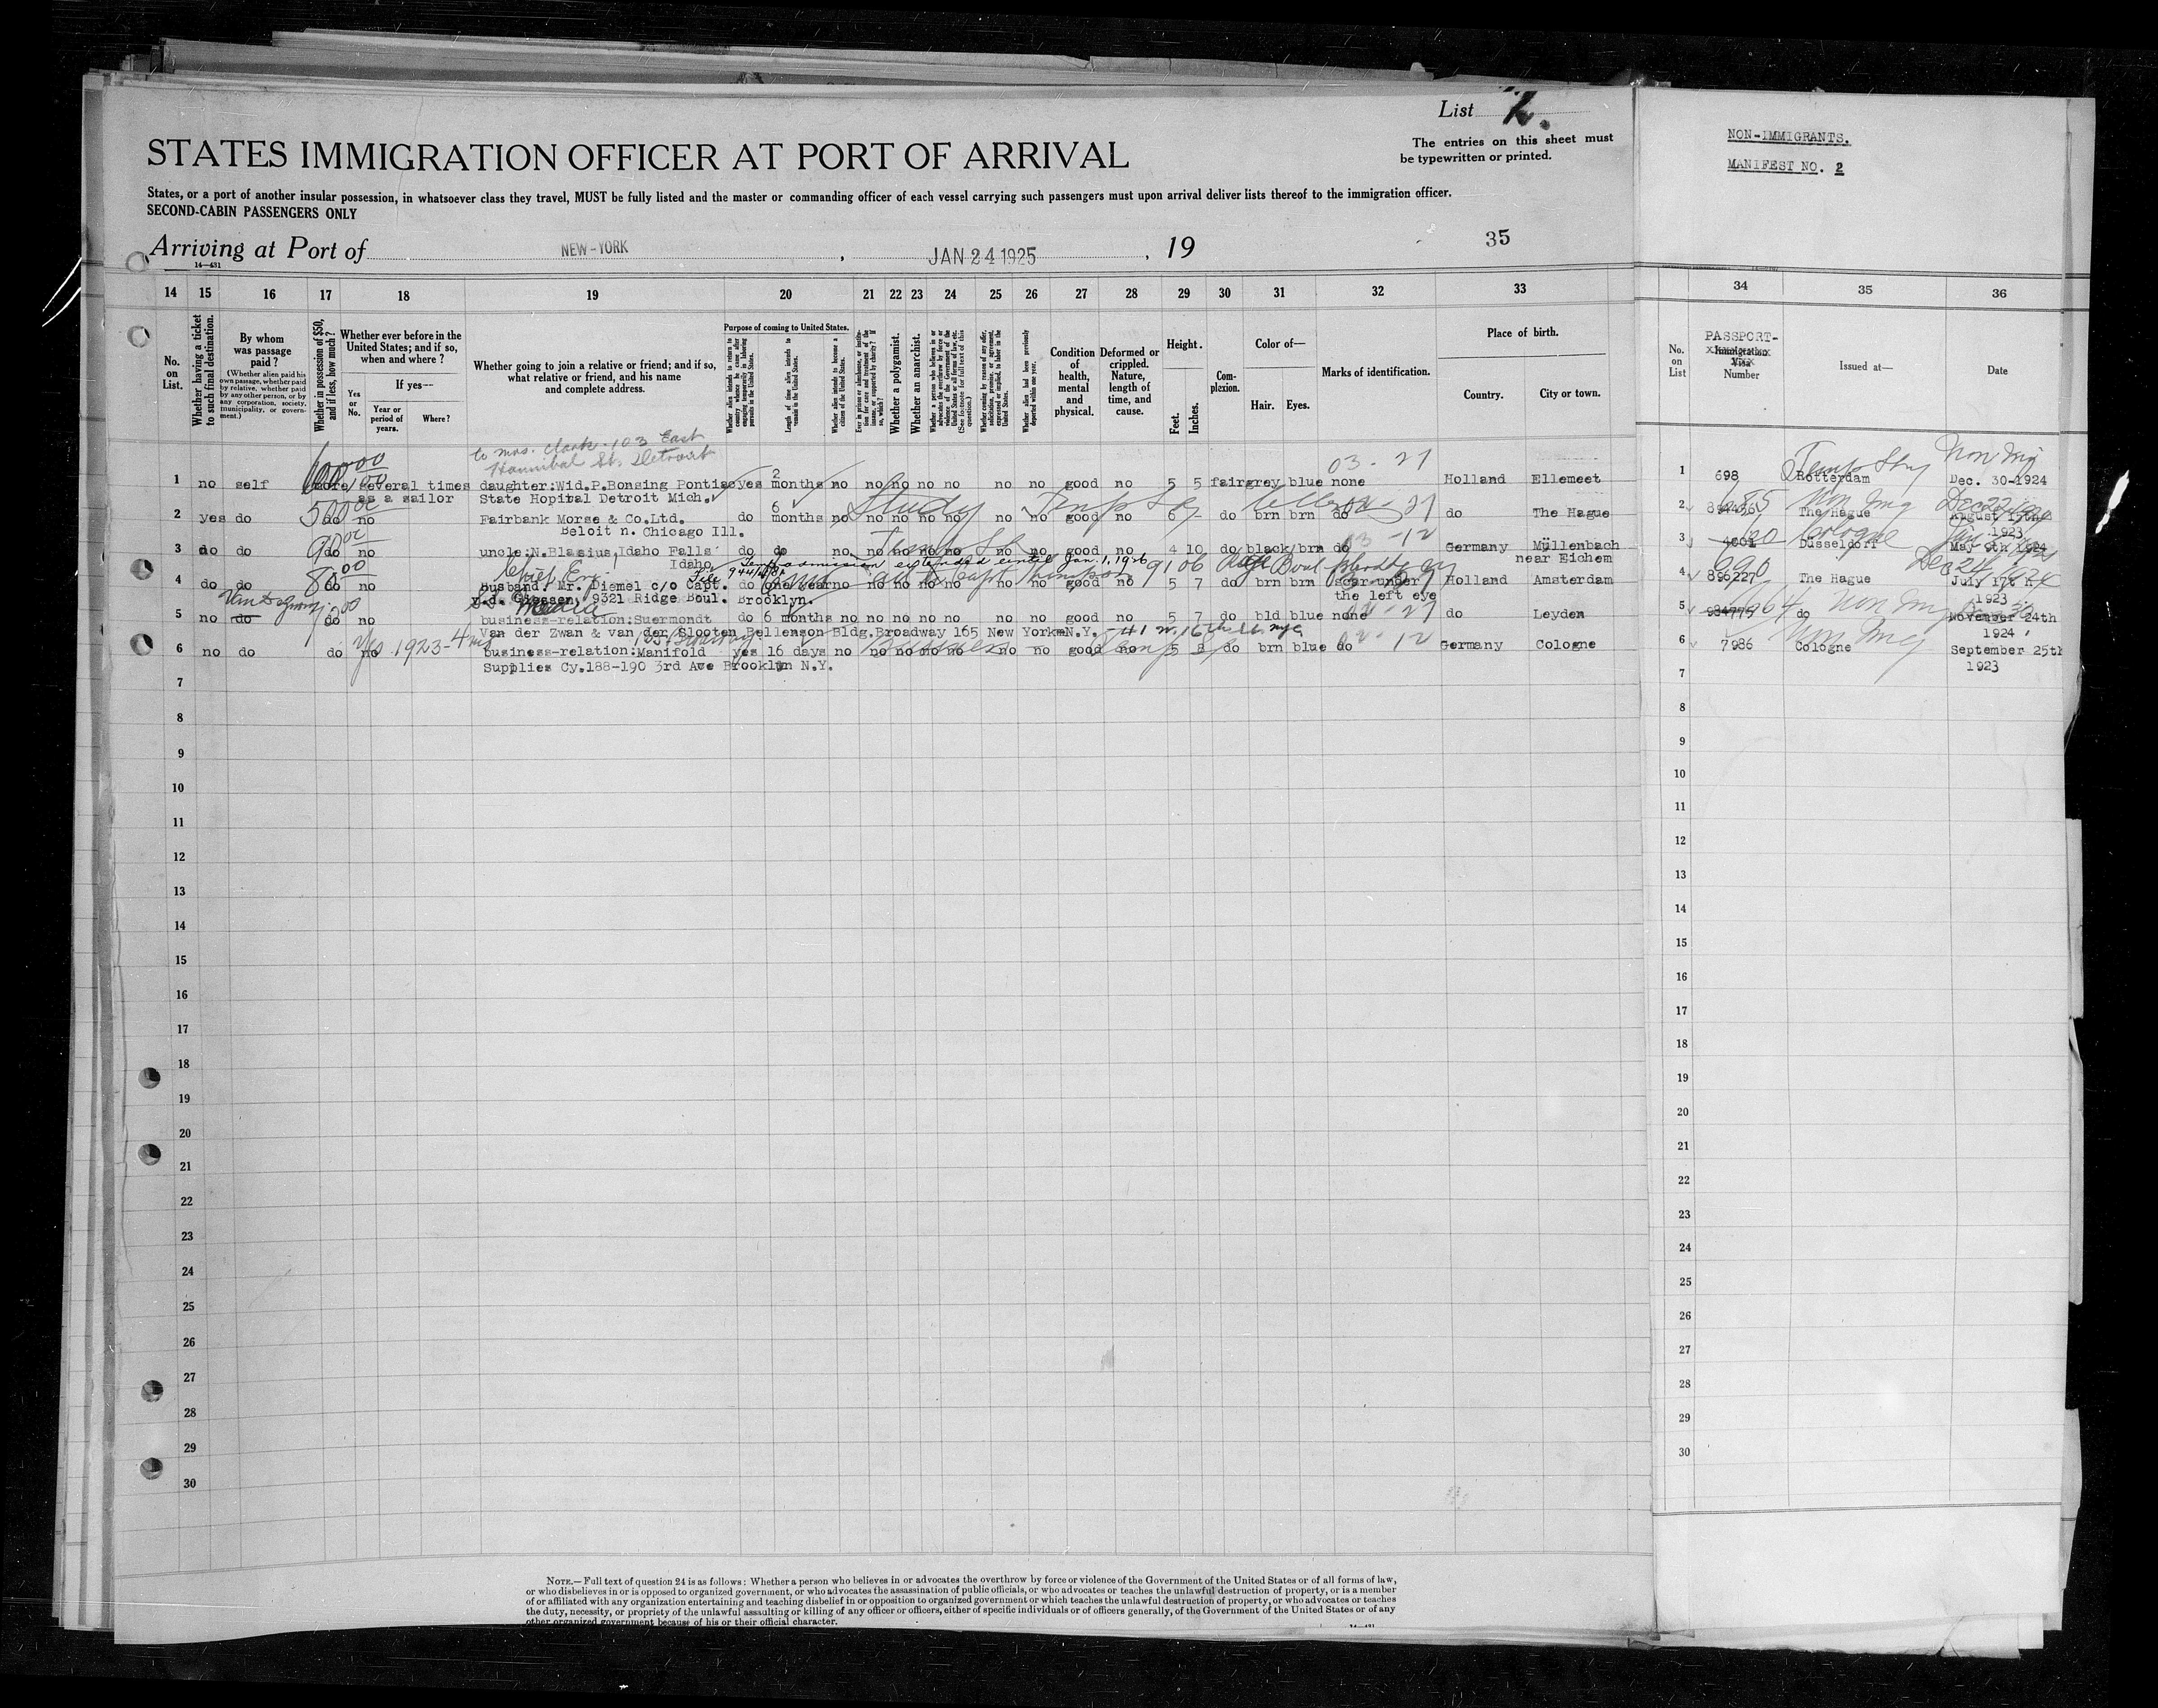 List 2.
The entries on this sheet must
be typewritten or printed.
NON-IMMIGRANTS.
MANIFEST NO. 2
STATES IMMIGRATION OFFICER AT PORT OF ARRIVAL
States, or a port of another insular possession, in whatsoever class they travel, MUST be fully listed and the master or commanding officer of each vessel carrying such passengers must upon arrival deliver lists thereof to the immigration officer.
SECOND-CABIN PASSENGERS ONLY
Arriving at Port of NEW-YORK , JAN 24 1925 , 19 35
14—431
14 15 16 17 18 19 20 21 22 23 24 25 26 27 28 29 30 31 32 33 34 35 36
No. on List.
Whether having a ticket to such final destination.
By whom was passage paid?
(Whether alien paid his own passage, whether paid by relative, whether paid by any other person, or by any corporation, society, municipality, or government.)
Whether in possession of $50, and if less, how much?
Whether ever before in the United States; and if so, when and where?
Yes or No.
If yes—
Year or period of years.
Where?
Whether going to join a relative or friend; and if so, what relative or friend, and his name and complete address.
Purpose of coming to United States.
Whether alien intends to return to country whence he came after engaging temporarily in laboring pursuits in the United States.
Length of time alien intends to remain in the United States.
Whether alien intends to become a citizen of the United States.
Ever in prison or almshouse, or institution for care and treatment of the insane, or supported by charity? If so, which?
Whether a polygamist.
Whether an anarchist.
Condition of health, mental and physical.
Deformed or crippled. Nature, length of time, and cause.
Height.
Feet.
Inches.
Complexion.
Color of—
Hair.
Eyes.
Marks of identification.
Place of birth.
Country.
City or town.
No. on List
PASSPORT-
Number
Issued at—
Date
to mrs. Clark - 103 East
Hannibal St. Detroit
1 no self more several times daughter:Wid.P.Bonsing Pontiac yes 2 months no no no no no no no good no 5 5 fair grey blue none 03-27 Holland Ellemeet
as a sailor State Hopital Detroit Mich.
1 698 Rotterdam Dec. 30-1924 Temp Stay Non Img
2 yes do 500 do no Fairbank Morse & Co.Ltd. do 6 months no no no no no no no good no 6 - do brn brn do do The Hague
Beloit n. Chicago Ill.
Study
2 The Hague August 15th 1923 Non Img
3 do do 90 do no uncle:N.Blasius,Idaho Falls do do no no no no no no no good no 4 10 do black/brn do 03-12 Germany Müllenbach
Idaho near Eichem
3 4601 Dusseldorf May 9th 1924 Cologne
Temp admission extended until Jan. 1, 1926
Chief Eng.
4 do do 80 do no Husband: Mr. Diemel c/o Capt. do one year no no no no no no no good no 5 7 do brn brn scar under Holland Amsterdam
s.s. Giessen, 9321 Ridge Boul. Brooklyn. the left eye
4 896227 The Hague July 17th 1923 690
5 no do do no business-relation:Suermondt do 6 months no no no no no no no good no 5 7 do bld blue none 02-27 do Leyden
Van der Zwan & van der Slooten Bellenson Bldg.Broadway 165 New York N.Y. 41 W. 16th St NYC
5 do November 24th 1924
6 no do do no yes 1923- business-relation:Manifold yes 16 days no no no no no no no good no 5 do brn blue do 02-12 Germany Cologne
Supplies Cy.188-190 3rd Ave Brooklyn N.Y.
6 7986 Cologne September 25th 1923 Non Img
7 7
8 8
9 9
10 10
11 11
12 12
13 13
14 14
15 15
16 16
17 17
18 18
19 19
20 20
21 21
22 22
23 23
24 24
25 25
26 26
27 27
28 28
29 29
30 30
NOTE.—Full text of question 24 is as follows: Whether a person who believes in or advocates the overthrow by force or violence of the Government of the United States or of all forms of law,
or who disbelieves in or is opposed to organized government, or who advocates the assassination of public officials, or who advocates or teaches the unlawful destruction of property, or is a member
of or affiliated with any organization entertaining and teaching disbelief in or opposition to organized government or which teaches the unlawful destruction of property, or who advocates or teaches
the duty, necessity, or propriety of the unlawful assaulting or killing of any officer or officers, either of specific individuals or of officers generally, of the Government of the United States or of any
other organized government because of his or their official character.
14—431